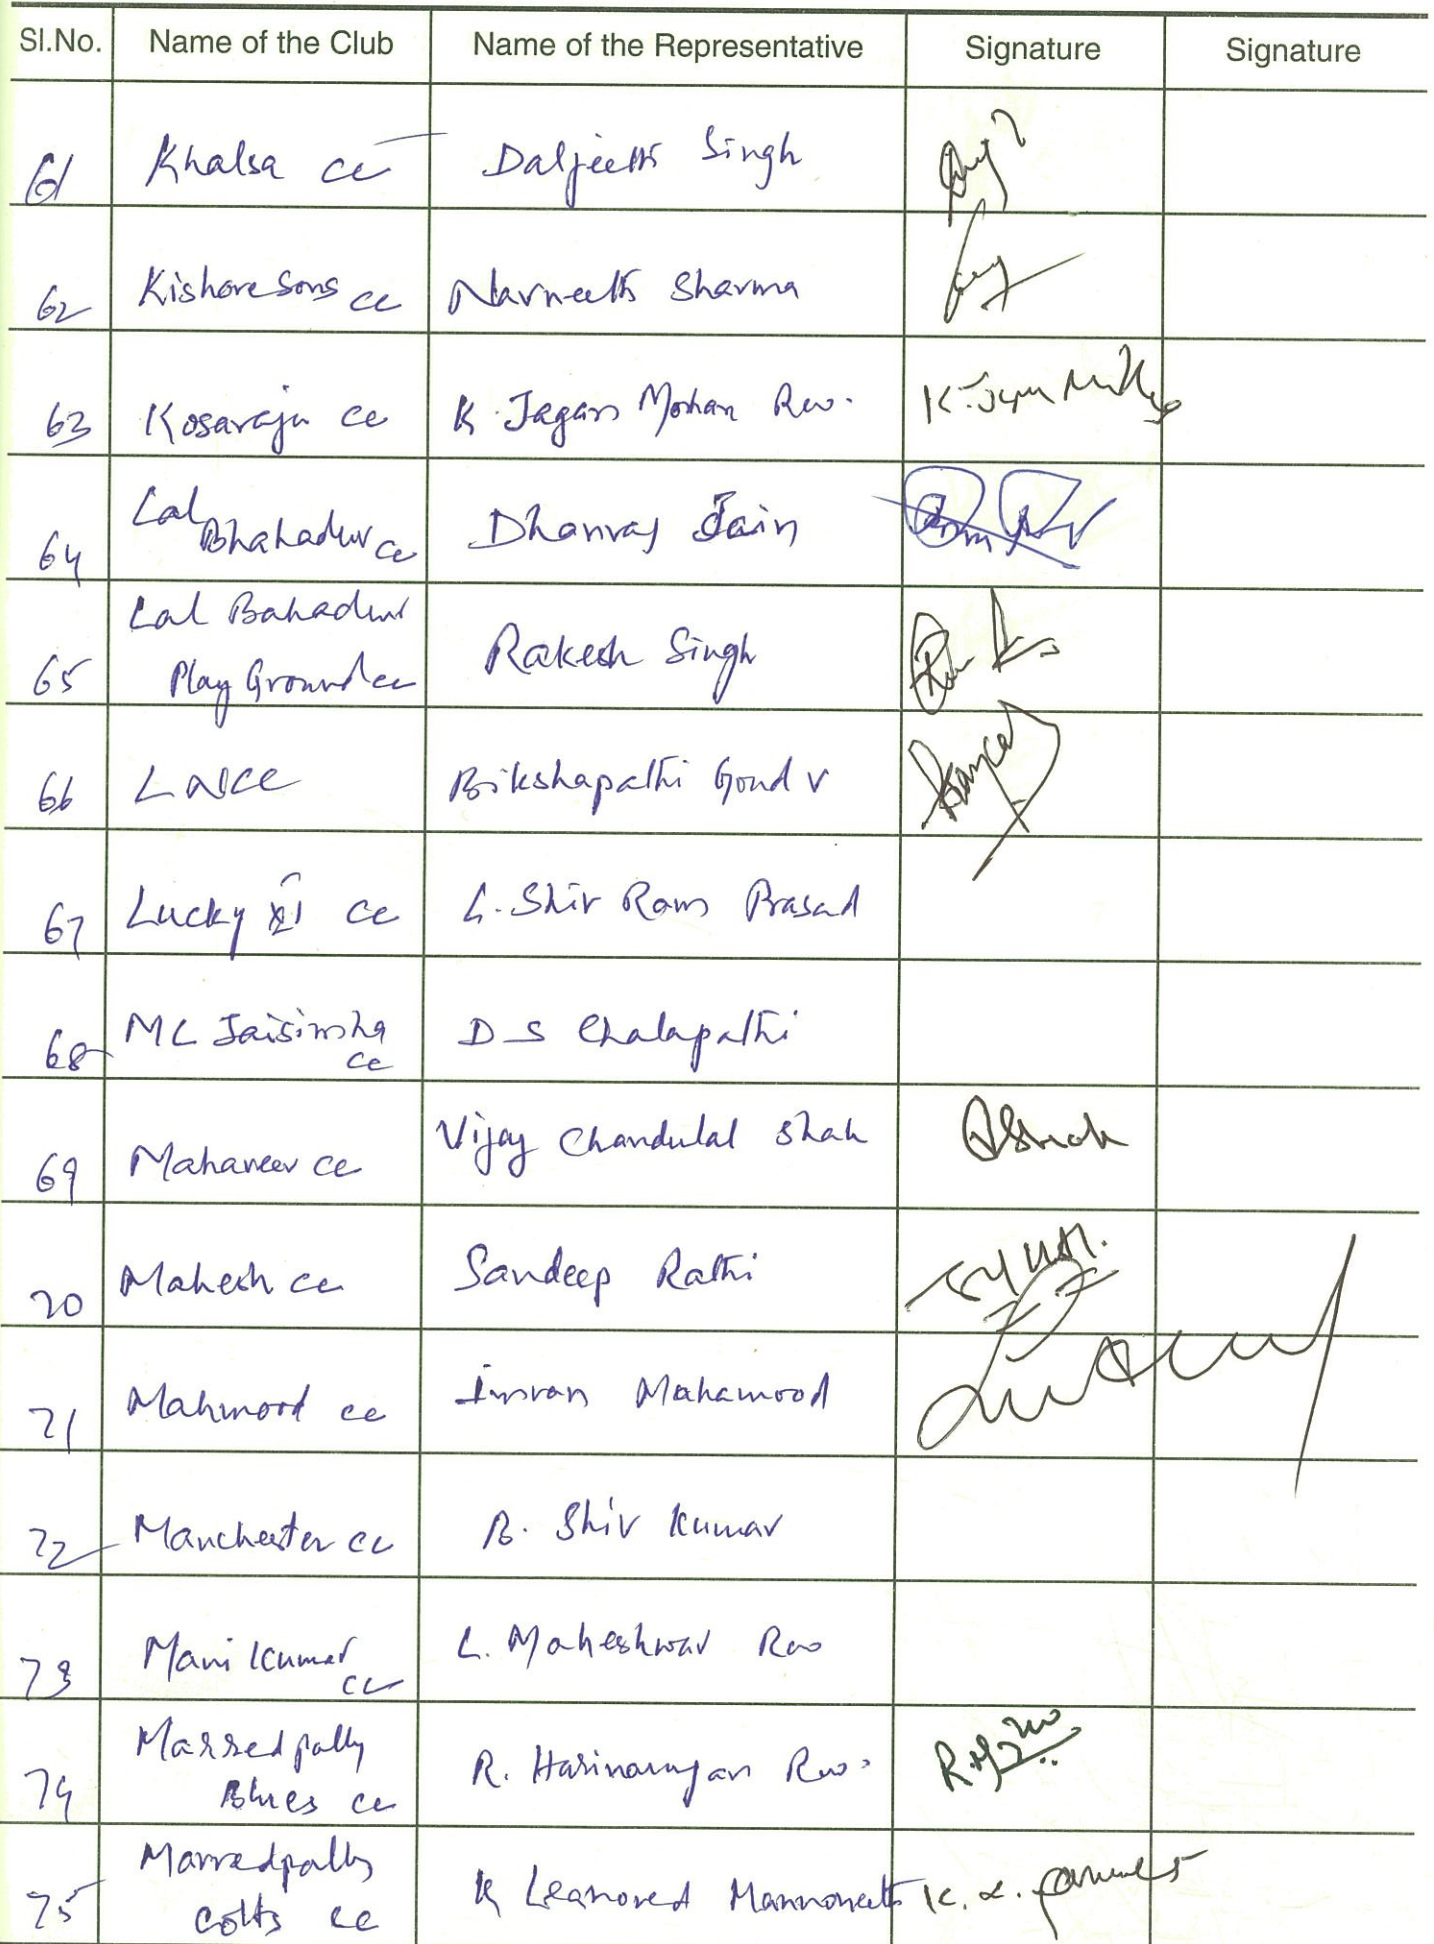 Sl.No. Name of the Club Name of the Representative Signature Signature
61 Khalsa cc Daljeeth Singh
62 Kishore Sons cc Navneeth Sharma
63 Kosaraju cc K. Jagan Mohan Rao.
64 Lal Dhanraj Jain
Bhahadur cc
65 Lal Bahadur Rakesh Singh
Play Ground cc
66 LNCC Bikshapathi Goud V
67 Lucky XI cc L. Shiv Ram Prasad
68 ML Jaisimha D S Chalapathi
cc
69 Mahaveer cc Vijay Chandulal Shah
70 Mahesh cc Sandeep Rathi
71 Mahmood cc Imran Mahamood
72 Manchester cc B. Shiv Kumar
73 Mani Kumar L. Maheshwar Rao
cc
74 Marredpally R. Harinarayan Rao.
Blues cc
75 Marredpally K
Colts cc